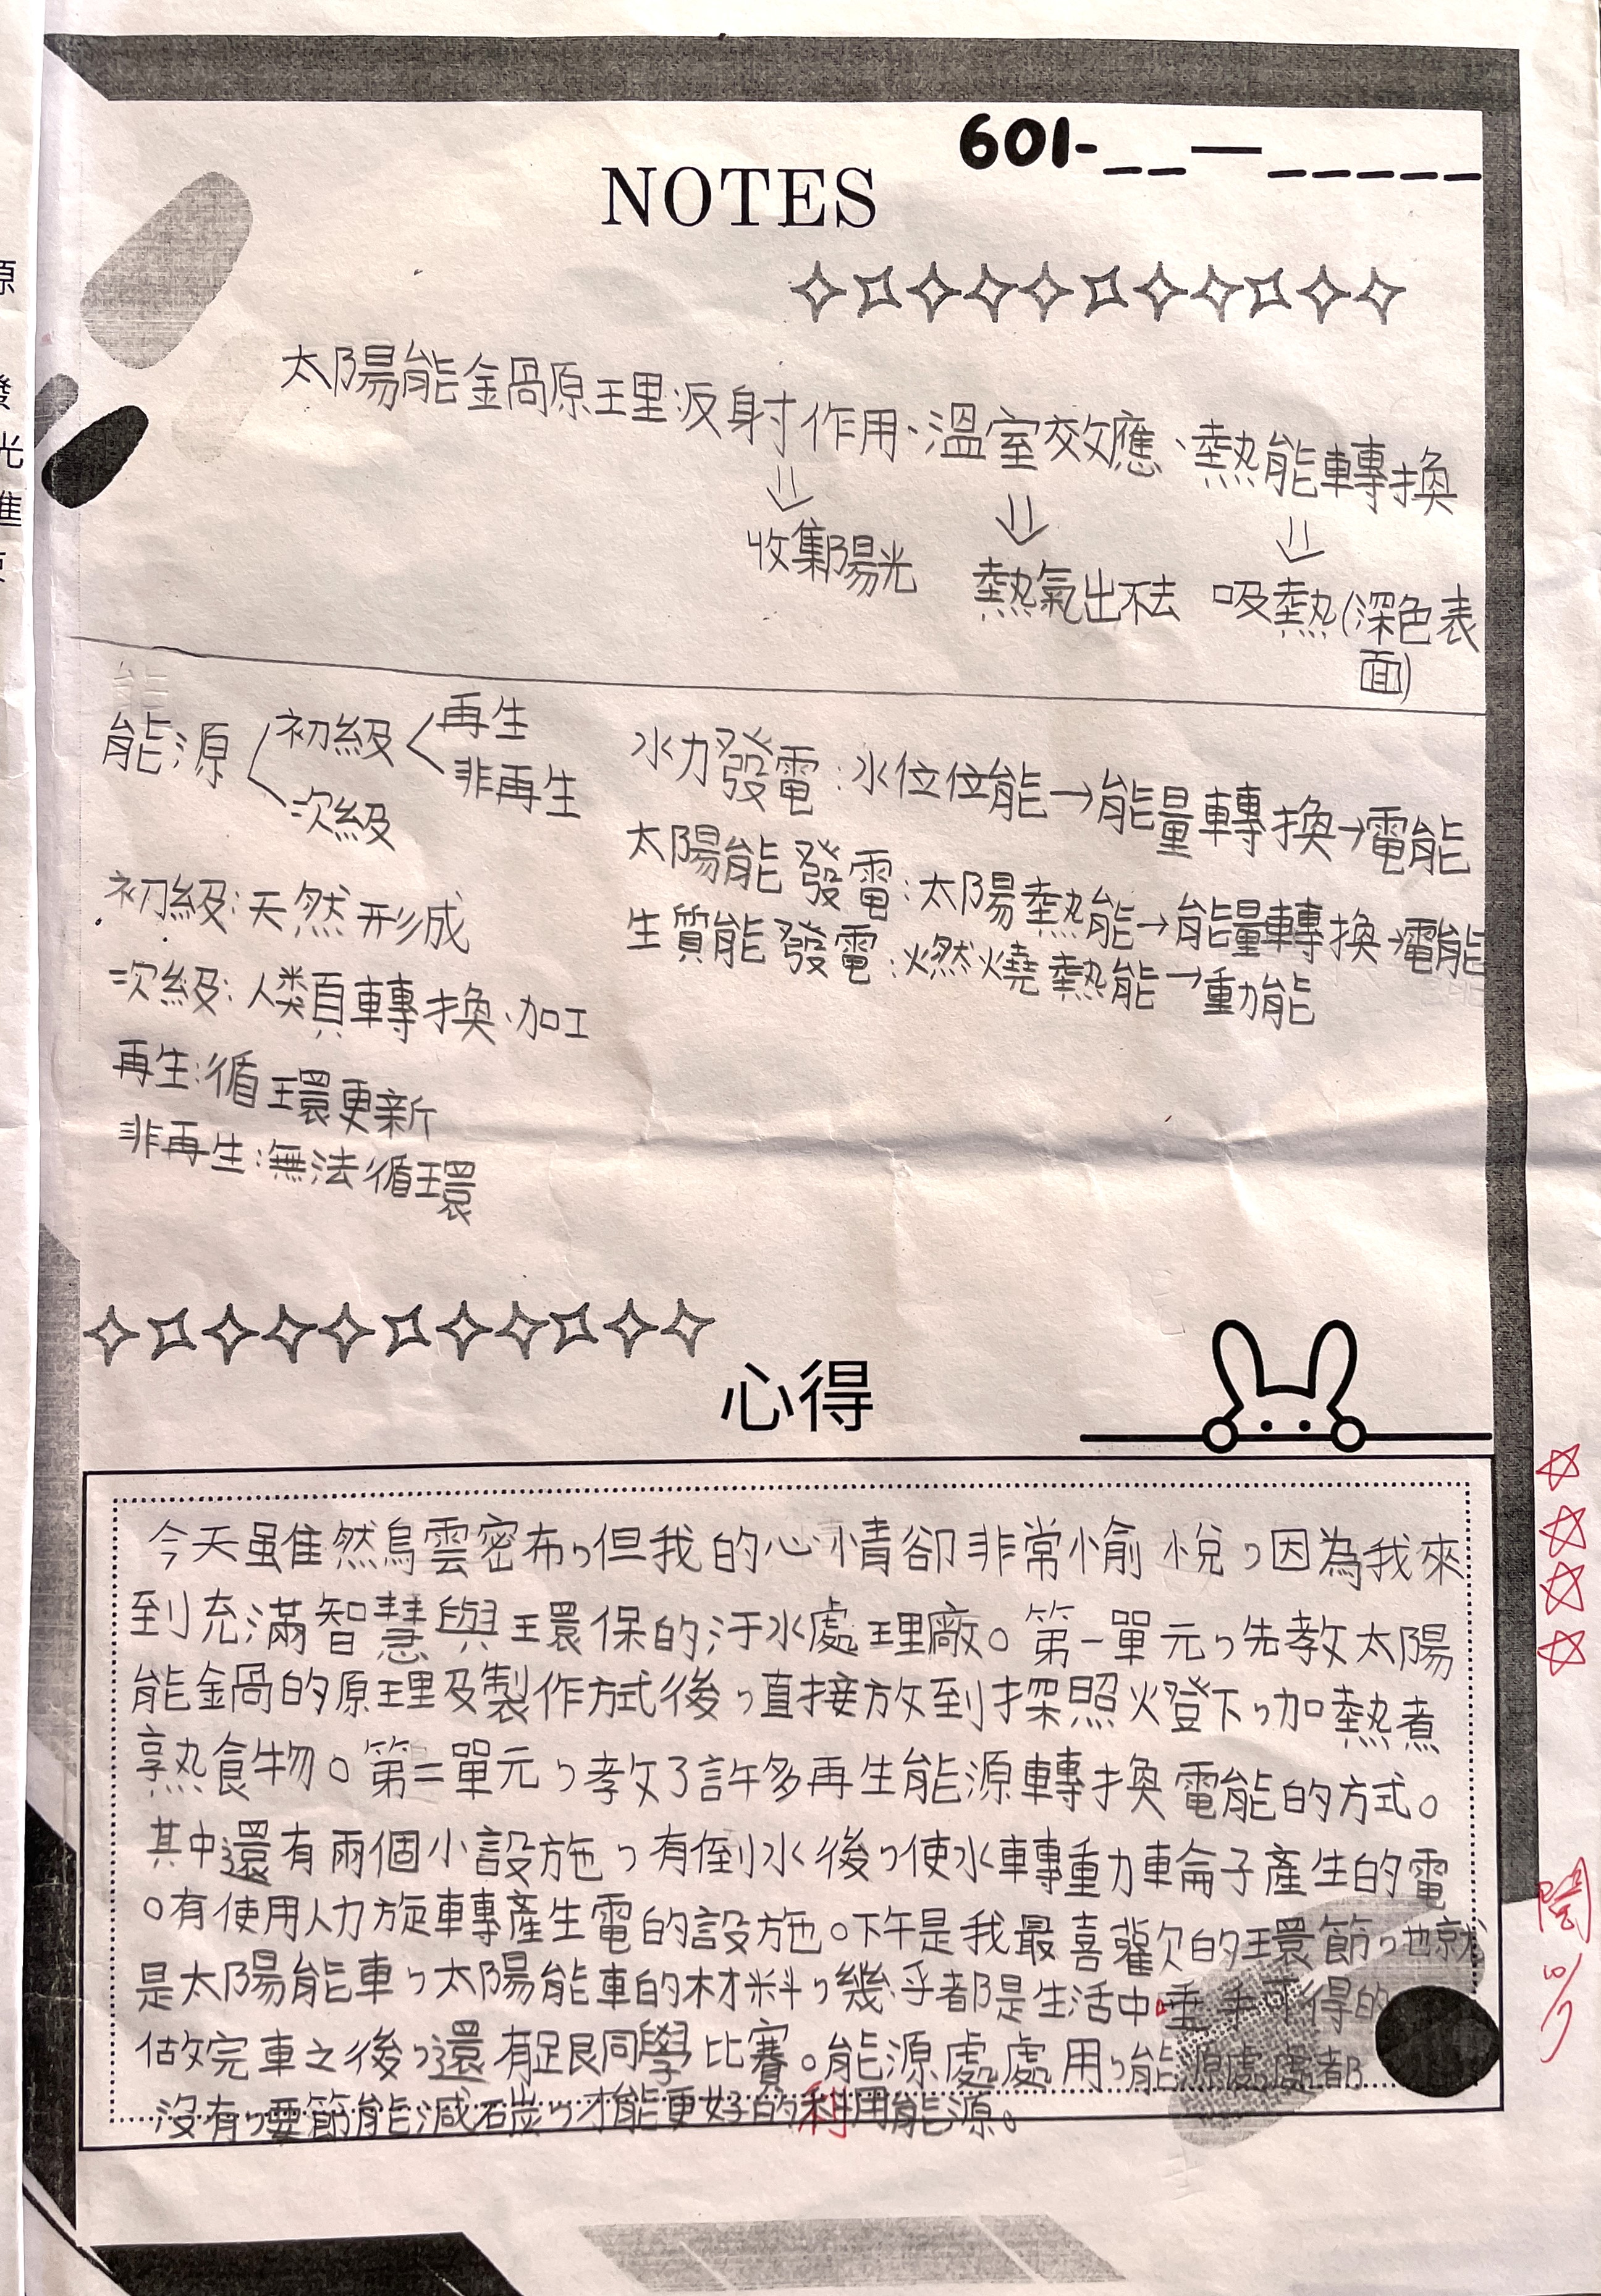 601-__—_____
NOTES
太陽能鍋原理反射作用、溫室效應、熱能轉換
收集陽光 熱氣出不去 吸熱(深色表
面)
能源 初級 再生
非再生
次級
水力發電:水位位能→能量轉換→電能
太陽能發電:太陽熱能→能量轉換→電能
生質能發電:燃燒熱能→動能
初級:天然形成
次級:人類轉換、加工
再生:循環更新
非再生:無法循環
心得
今天雖然烏雲密布,但我的心情卻非常愉悅,因為我來
到充滿智慧與環保的汙水處理廠。第一單元,先教太陽
能鍋的原理及製作方式後,直接放到探照燈下,加熱煮
熟食物。第二單元,教了許多再生能源轉換電能的方式。
其中還有兩個小設施,有倒水後,使水車轉動車輪子產生的電
。有使用人力旋轉產生電的設施。下午是我最喜歡的環節,也就
是太陽能車,太陽能車的材料,幾乎都是生活中垂手可得的
做完車之後,還有跟同學比賽。能源處處用,能源處處都
沒有,要節能減碳,才能更好的利用能源。
閱
10/7